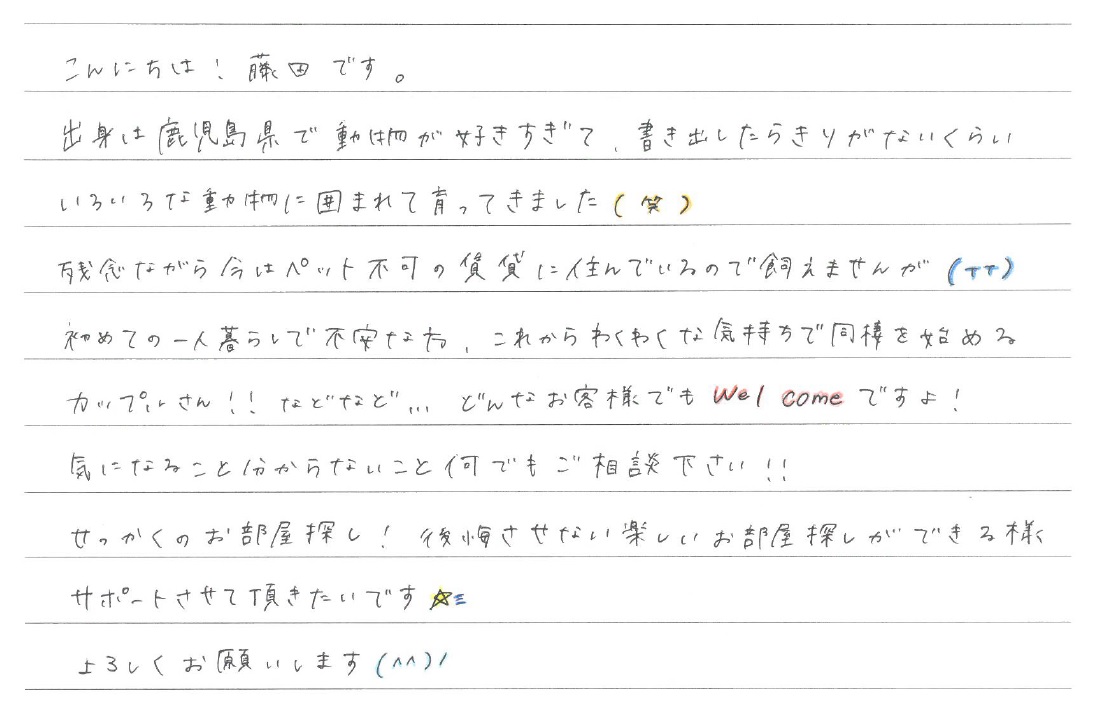 こんにちは！藤田です。
出身は鹿児島県で動物が好きすぎて、書き出したらきりがないくらい
いろいろな動物に囲まれて育ってきました(笑)
残念ながら今はペット不可の賃貸に住んでいるので飼えませんが(TT)
初めての一人暮らしで不安な方、これからわくわくな気持ちで同棲を始める
カップルさん!! などなど... どんなお客様でも Welcome ですよ！
気になること分からないこと何でもご相談下さい!!
せっかくのお部屋探し！後悔させない楽しいお部屋探しができる様
サポートさせて頂きたいです☆≡
よろしくお願いします(^^)/